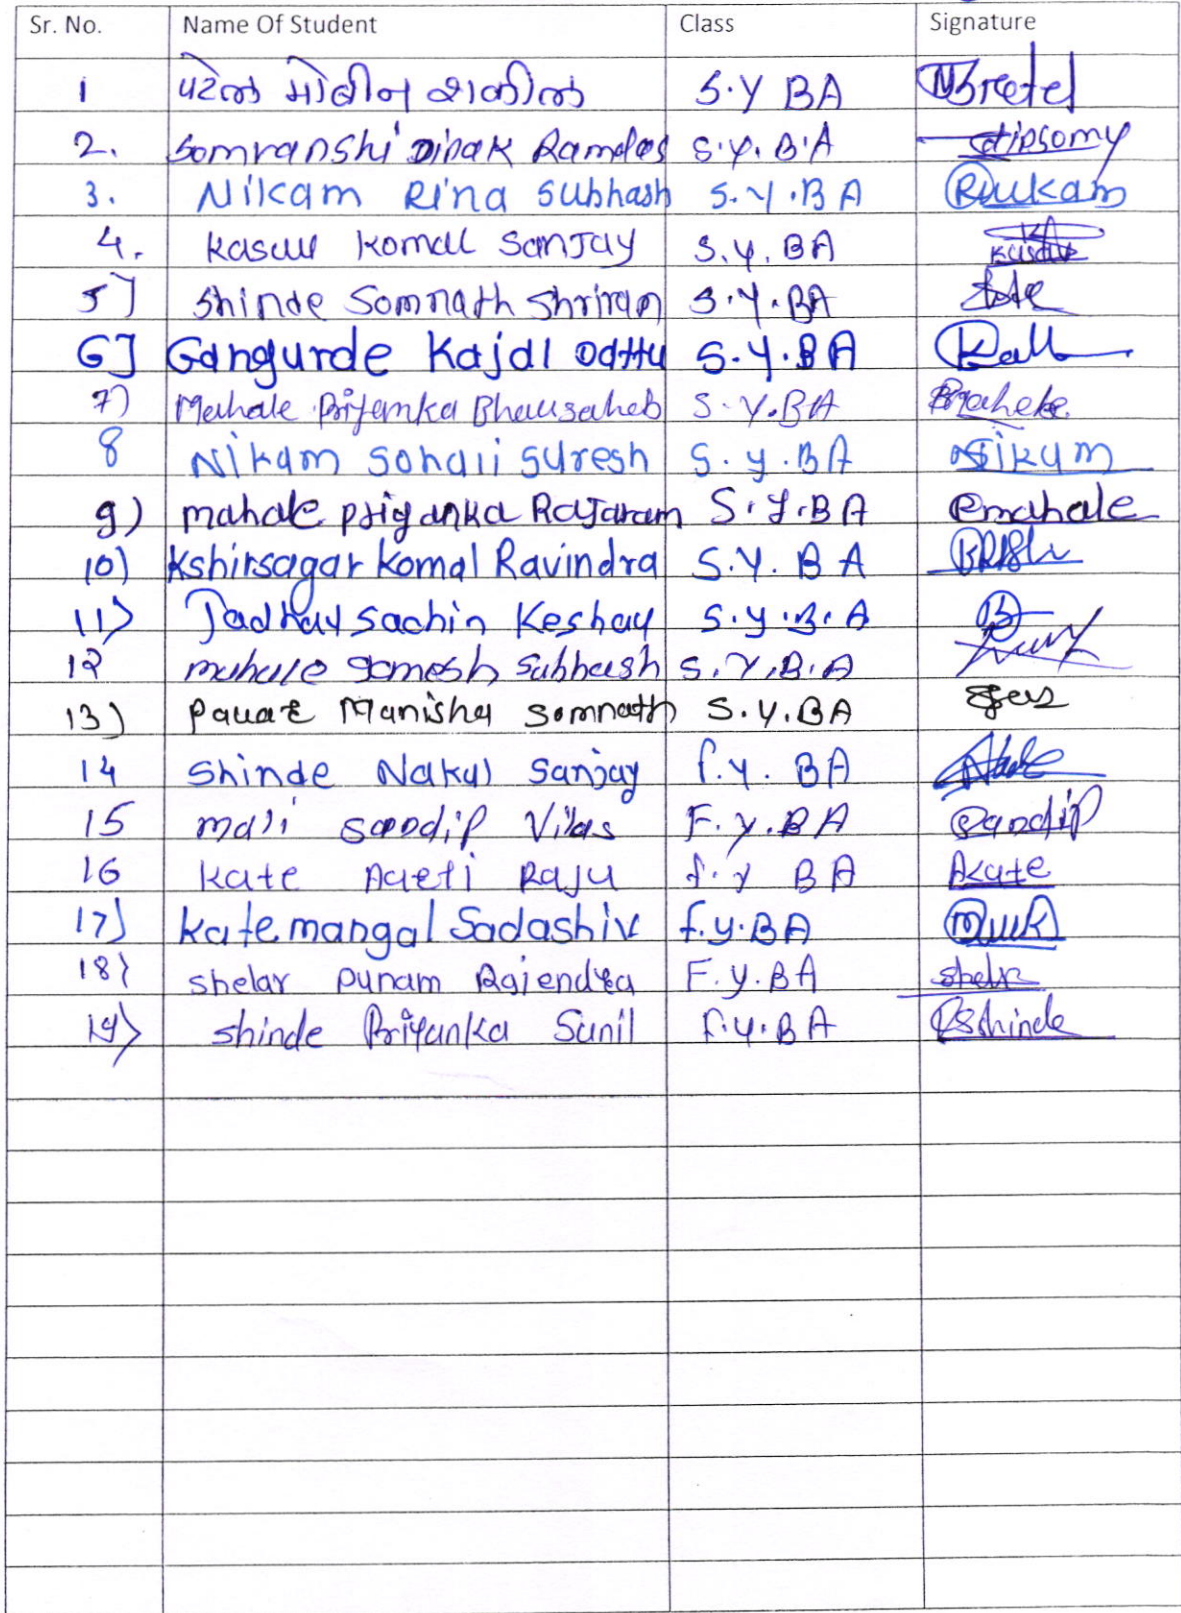 Sr. No. Name Of Student Class Signature
1 पटेल मोबीन शकील S.Y BA
2. Somvanshi Dipak Ramdas S.Y.B.A dipsomy
3. Nikam Rina Subhash S.Y.BA RNikam
4. Kasav Komal Sanjay S.Y.BA
5] Shinde Somnath Shriram S.Y.BA
6] Gangurde Kajal Dattu S.Y.BA
7) Mahale Priyanka Bhausaheb S.Y.BA
8 Nikam Sonali Suresh S.y.BA Nikam
9) mahale priyanka Rajaram S.Y.BA Pmahale
10) Kshirsagar Komal Ravindra S.Y.BA
11) Jadhav Sachin Keshav S.y.B.A
12 mahale Subhash S.Y.B.A
13) Manisha Somnath S.Y.BA
14 Shinde Nakul Sanjay f.y. BA
15 mali Sandip Vilas F.y.BA Sandip
16 Kate Aarti Raju f.y BA AKate
17) Kate mangal Sadashiv f.y.BA
18) Shelar Punam Rajendra F.y.BA
19) shinde Priyanka Sunil F.y.BA PSshinde